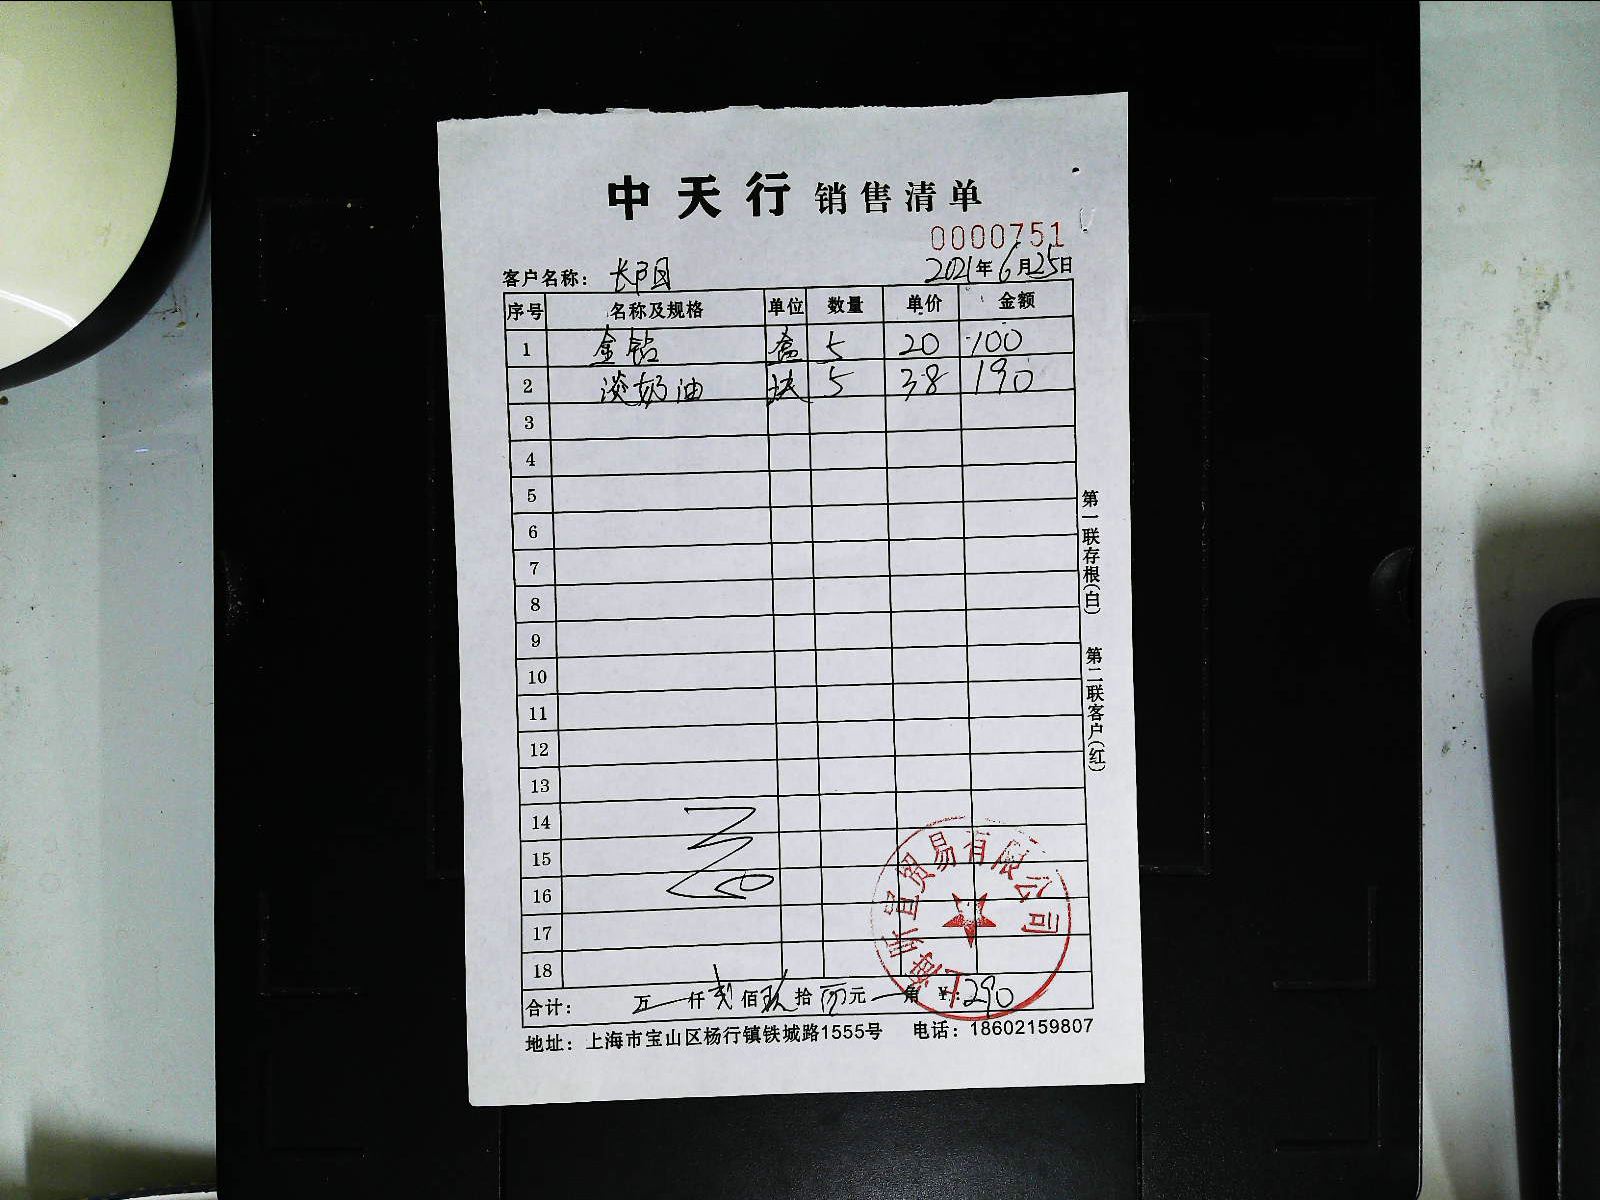 中天行 销售清单
0000751
客户名称：长阳 2021年6月25日
序号 名称及规格 单位 数量 单价 金额
1 金钻 盒 5 20 100
2 淡奶油 块 5 38 190
3
4
5
6
7
8
9
10
11
12
13
14
15
16
17
18
合计： 万 仟 贰 佰 玖 拾 元 角 ¥:290
地址：上海市宝山区杨行镇铁城路1555号 电话：18602159807
第一联存根(白) 第二联客户(红)
上海 宜贸易有限公司